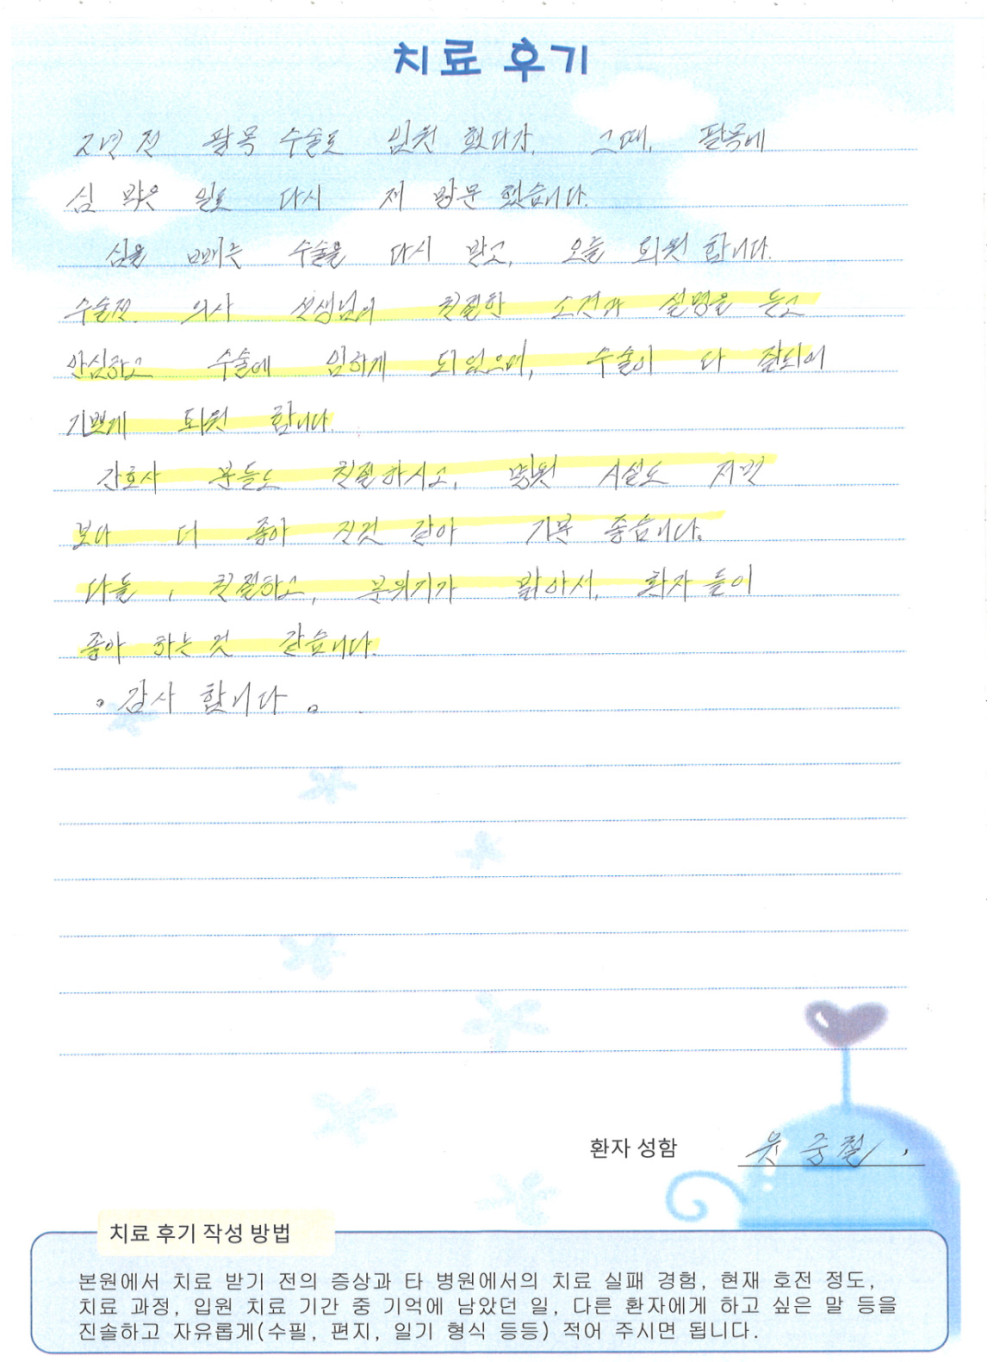 치료 후기
2년 전 팔목 수술로 입원 했다가. 그때, 팔목에
심 박은 일로 다시 재 방문 했습니다.
심을 빼는 수술을 다시 받고, 오늘 퇴원 합니다.
수술전 의사 선생님의 친절한 소견과 설명을 듣고
안심하고 수술에 임하게 되었으며, 수술이 다 잘되어
기쁘게 퇴원 합니다.
간호사 분들도 친절하시고, 병원 시설도 저번
보다 더 좋아 진것 같아 기분 좋습니다.
다들, 친절하고, 분위기가 밝아서, 환자 들이
좋아 하는 것 같습니다.
。감사 합니다 。
환자 성함 윤중철.
치료 후기 작성 방법
본원에서 치료 받기 전의 증상과 타 병원에서의 치료 실패 경험, 현재 호전 정도,
치료 과정, 입원 치료 기간 중 기억에 남았던 일, 다른 환자에게 하고 싶은 말 등을
진솔하고 자유롭게(수필, 편지, 일기 형식 등등) 적어 주시면 됩니다.